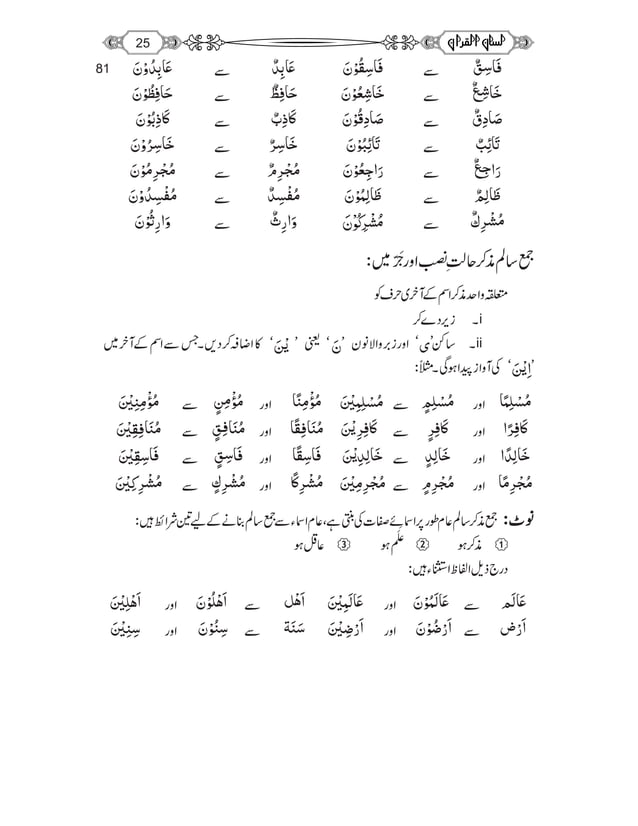 لسان القرآن 25
فَاسِقٌ سے فَاسِقُوْنَ عَابِدٌ سے عَابِدُوْنَ 81
خَاشِعٌ سے خَاشِعُوْنَ حَافِظٌ سے حَافِظُوْنَ
صَادِقٌ سے صَادِقُوْنَ كَاذِبٌ سے كَاذِبُوْنَ
تَائِبٌ سے تَائِبُوْنَ خَاسِرٌ سے خَاسِرُوْنَ
رَاجِعٌ سے رَاجِعُوْنَ مُجْرِمٌ سے مُجْرِمُوْنَ
ظَالِمٌ سے ظَالِمُوْنَ مُفْسِدٌ سے مُفْسِدُوْنَ
مُشْرِكٌ سے مُشْرِكُوْنَ وَارِثٌ سے وَارِثُوْنَ
جمع سالم مذکر حالتِ نصب اور جَرّ میں:
متعلقہ واحد مذکر اسم کے آخری حرف کو
i۔ زیر دے کر
ii۔ ساکن ’ی‘ اور زبر والا نون ’نَ‘ یعنی ’يْنَ‘ کا اضافہ کردیں۔ جس سے اسم کے آخر میں
’اِيْنَ‘ کی آواز پیدا ہوگی۔ مثلاً:
مُسْلِمًا اور مُسْلِمٍ سے مُسْلِمِيْنَ مُؤْمِنًا اور مُؤْمِنٍ سے مُؤْمِنِيْنَ
كَافِرًا اور كَافِرٍ سے كَافِرِيْنَ مُنَافِقًا اور مُنَافِقٍ سے مُنَافِقِيْنَ
خَالِدًا اور خَالِدٍ سے خَالِدِيْنَ فَاسِقًا اور فَاسِقٍ سے فَاسِقِيْنَ
مُجْرِمًا اور مُجْرِمٍ سے مُجْرِمِيْنَ مُشْرِكًا اور مُشْرِكٍ سے مُشْرِكِيْنَ
نوٹ: جمع مذکر سالم عام طور پر اسمائے صفات کی بنتی ہے، عام اسماء سے جمع سالم بنانے کے لیے تین شرائط ہیں:
① مذکر ہو ② عَلَم ہو ③ عاقل ہو
درج ذیل الفاظ استثناء ہیں:
عَالَم سے عَالَمُوْنَ اور عَالَمِيْنَ اَهْل سے اَهْلُوْنَ اور اَهْلِيْنَ
اَرْض سے اَرْضُوْنَ اور اَرْضِيْنَ سَنَة سے سِنُوْنَ اور سِنِيْنَ